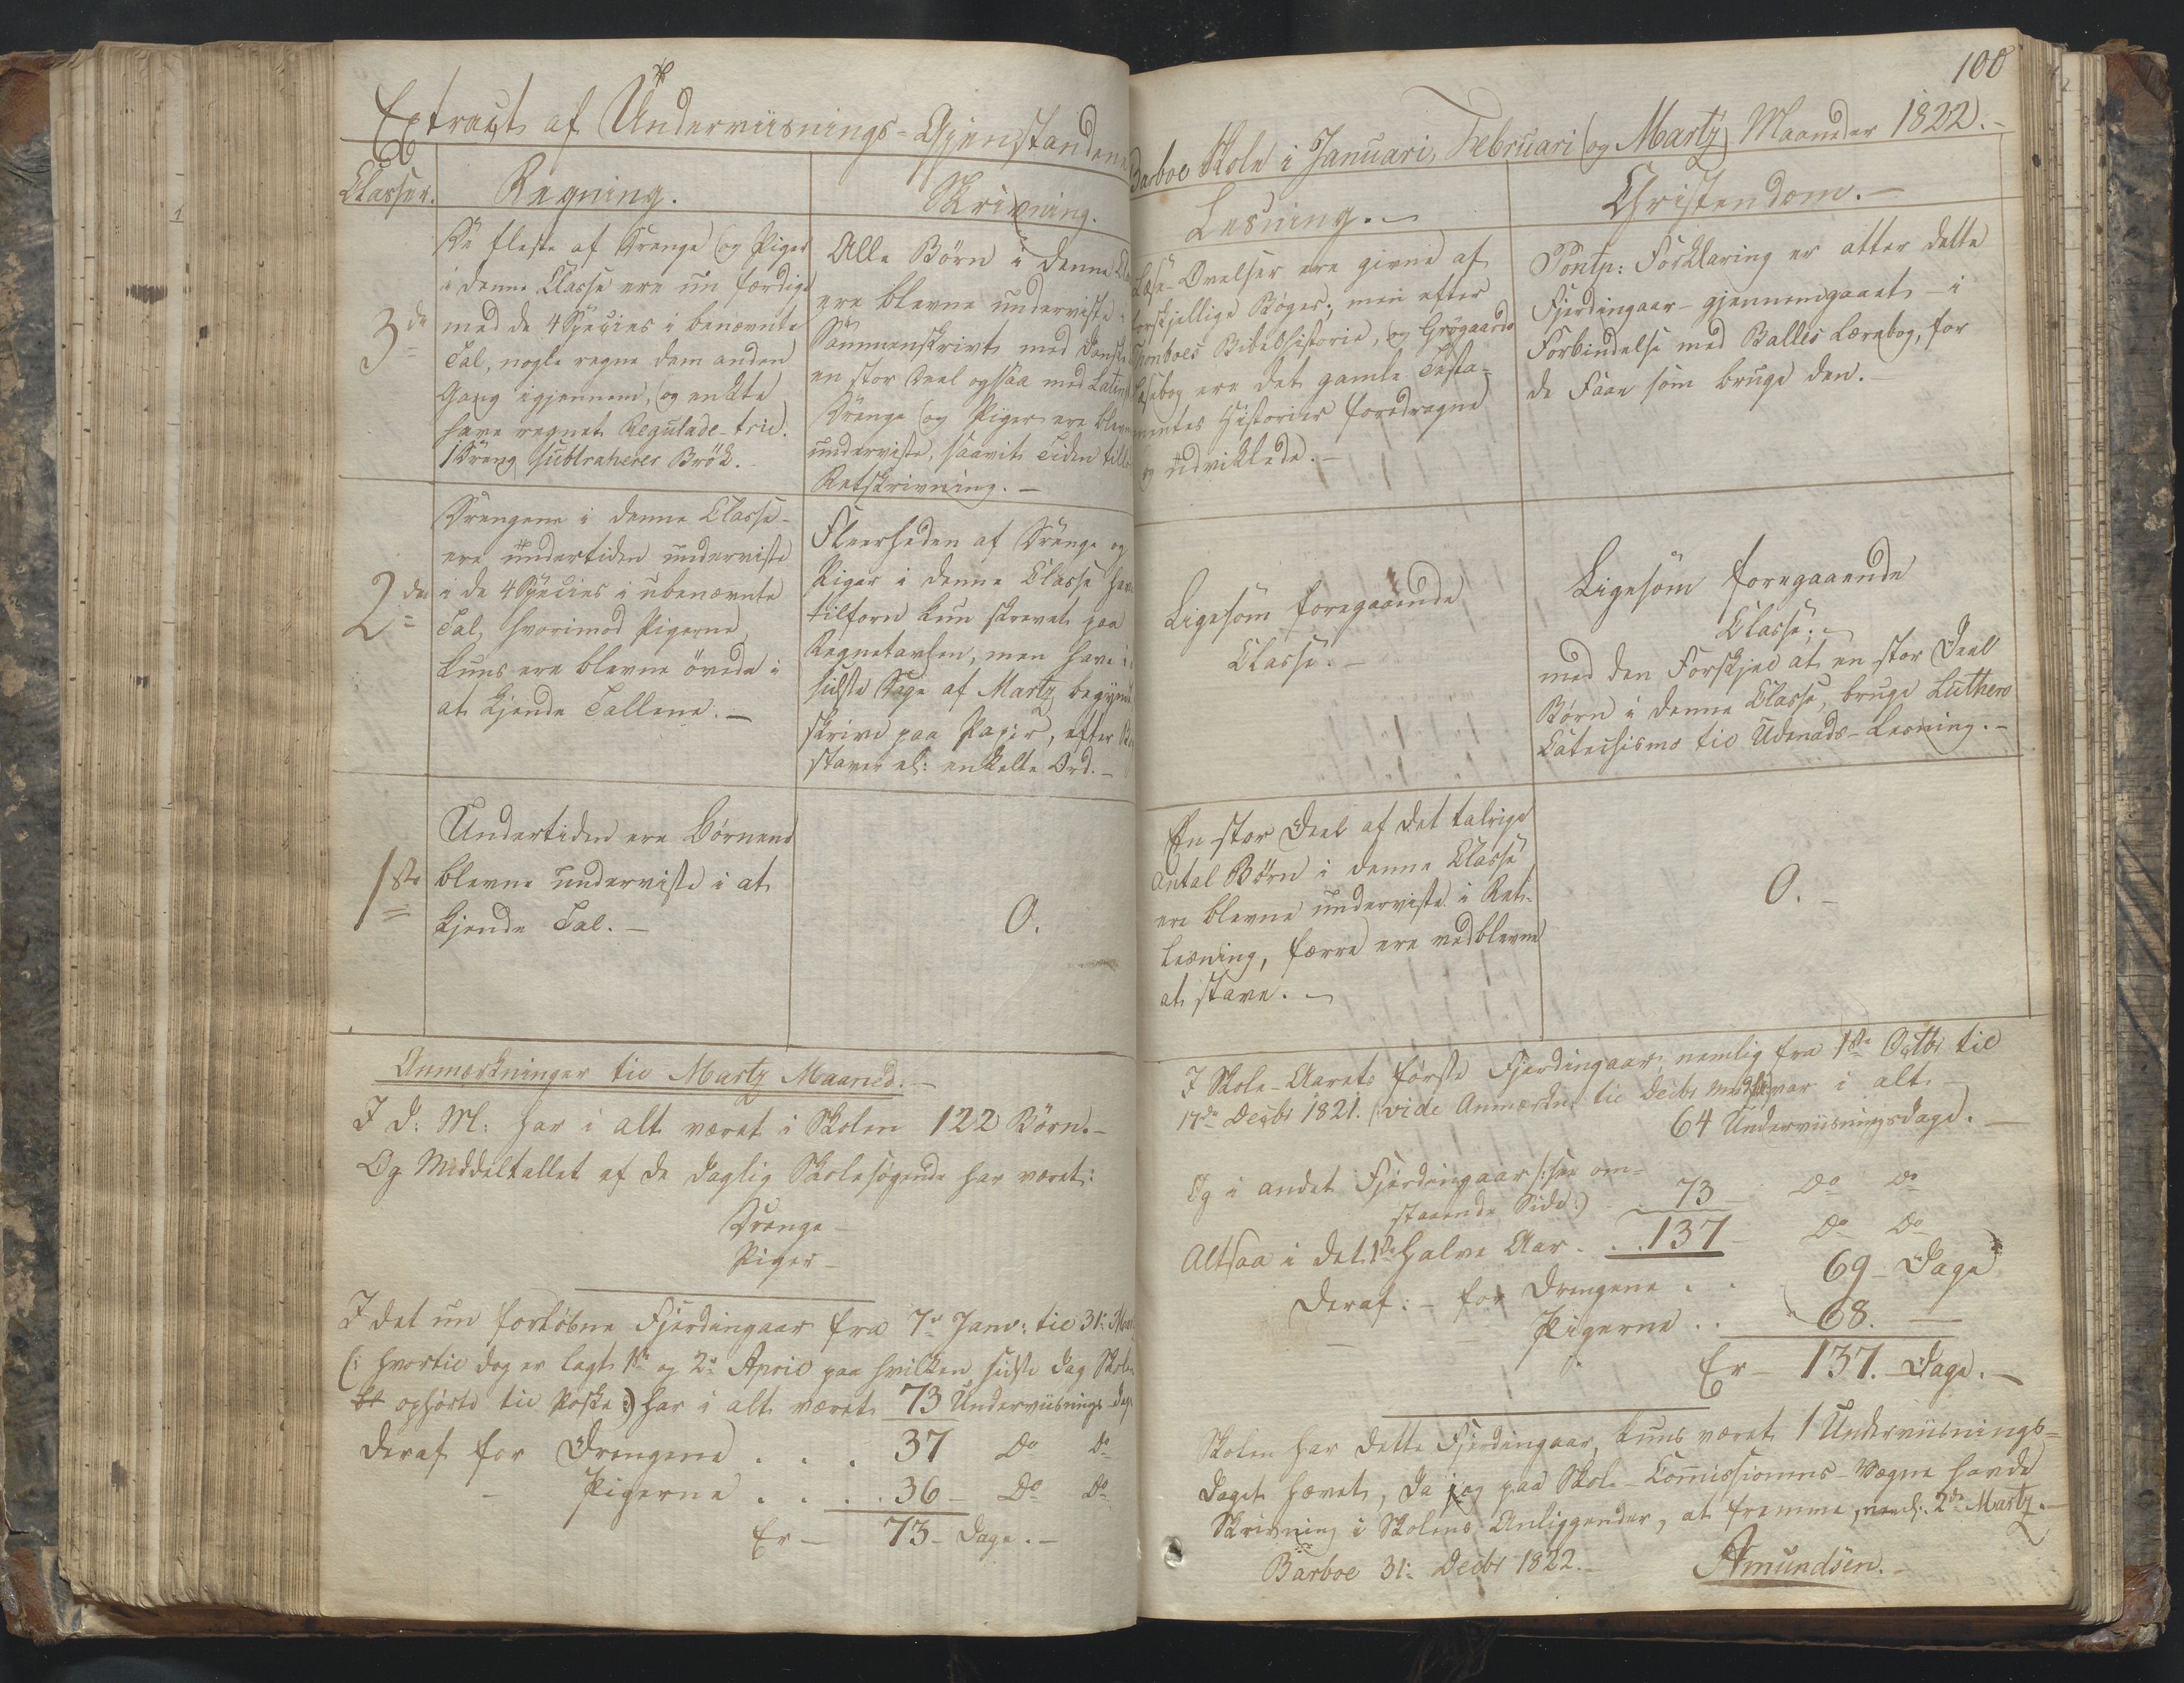 Extract af Underviisnings-Gjenstandene
Classer.
Regning.
Skrivning.
3de
De fleste af Drenge og Piger
i denne Classe ere nu færdige
med de 4 Species i benævnte
Tal, nogle regne dem anden
Gang igjennem, og enkte
have regnet Regulade-trie.
1 Dreng subtraherer Brök.
Alle Börn i denne
ere blevne underviste i
Sammenskrivt med Danske
en stor Deel ogsaa med Latinsk
Drenge og Piger ere blevne
underviste, saavit Tiden till
Retskrivning. -
2den
Drengene i denne Classe
ere undertiden underviste
i de 4 Species i ubenævnte
Tal, hvorimod Pigerne
kuns ere blevne övede i
at kjende Tallene. -
Fleerheden af Drenge og
Piger i denne Classe have
tilforn kun skrevet paa
Regnetavlen, men have i
sidste Dage af Martz begyndt
skrive paa Papir, efter
staver el: enkelte Ord. -
1ste
Undertiden ere Börnene
blevne underviste i at
kjende Tal. -
0.
Anmærkninger til Martz Maaned. -
I D: M: har i alt været i Skolen 122 Börn. -
Og Middeltallet af de daglig Skolesögende har været:
Drenge -
Piger -
I det nu forlöbne Fjerdingaar fra 7de Janv: til 31: Mart
(: hvortil dog er lagt 1ste og 2den April paa hvilken sidste Dag Skolen
ophörte til Paaske :) har i alt været 73 Underviisnings-Dage
Deraf for Drengene . . . 37 Do Do
- Pigerne . . . . 36 - Do Do
Er - 73 - Dage. -
100
Barboe Skole i Januari, Februari og Martz Maaneder 1822. -
Lesning. -
Christendom. -
Læse-Övelser ere givne af
forskjellige Böger; men efter
Bibelhistorie, og Grögaards
Læsebog ere det gamle Testa-
mentes Historier foredragne
og udviklede. -
Pontp: Forklaring er atter dette
Fjerdingaar gjennemgaaet i
Forbindelse med Balles Lærebog, for
de Faae som bruge den. -
Ligesom foregaaende
Classe. -
Ligesom foregaaende
Classe; -
med den Forskjel at en stor Deel
Börn i denne Classe, bruge Luthers
Catechismo til Udenads-Lesning. -
En stor Deel af det talrige
Antal Börn i denne Classe
ere blevne underviste i Ret-
Lesning, færre ere vedblevne
at stave. -
0. -
I Skole-Aarets förste Fjerdingaar, nemlig fra 1ste Octbr til
17de Decbr 1821. (vide Anmærkn: til Decbr var i alt -
64 Underviisningsdage. -
Og i andet Fjerdingaar (: see om-
staaende Side :) . . 73 - Do Do
Altsaa i det 1ste halve Aar . . . 137 - Do Do
Deraf: - for Drengene . . 69 - Dage
- Pigerne . . 68. -
Er - 137. Dage. -
Skolen har dette Fjerdingaar, kuns været 1 Underviisnings-
Daget hævet, da jeg paa Skole-Commissionens-Vegne havde
Skrivning i Skolens Anliggender, at fremme, neml: 2den Martz. -
Barboe 31: Decbr 1822. -
Amundsen. -